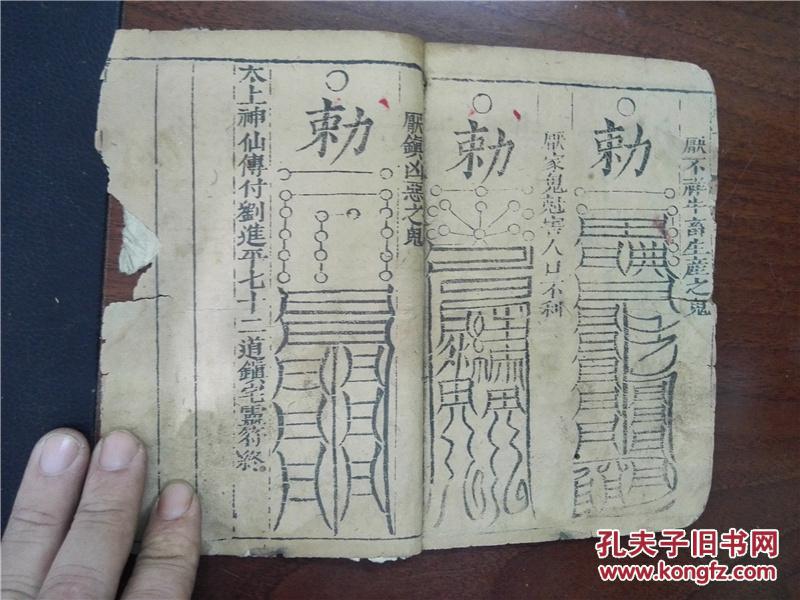 厭不祥牛畜生產之鬼
勅
厭家鬼尅害人口不利
勅
厭鎮凶惡之鬼
勅
太上神仙傳付劉進平七十二道鎮宅靈符終
孔夫子旧书网
www.kongfz.com